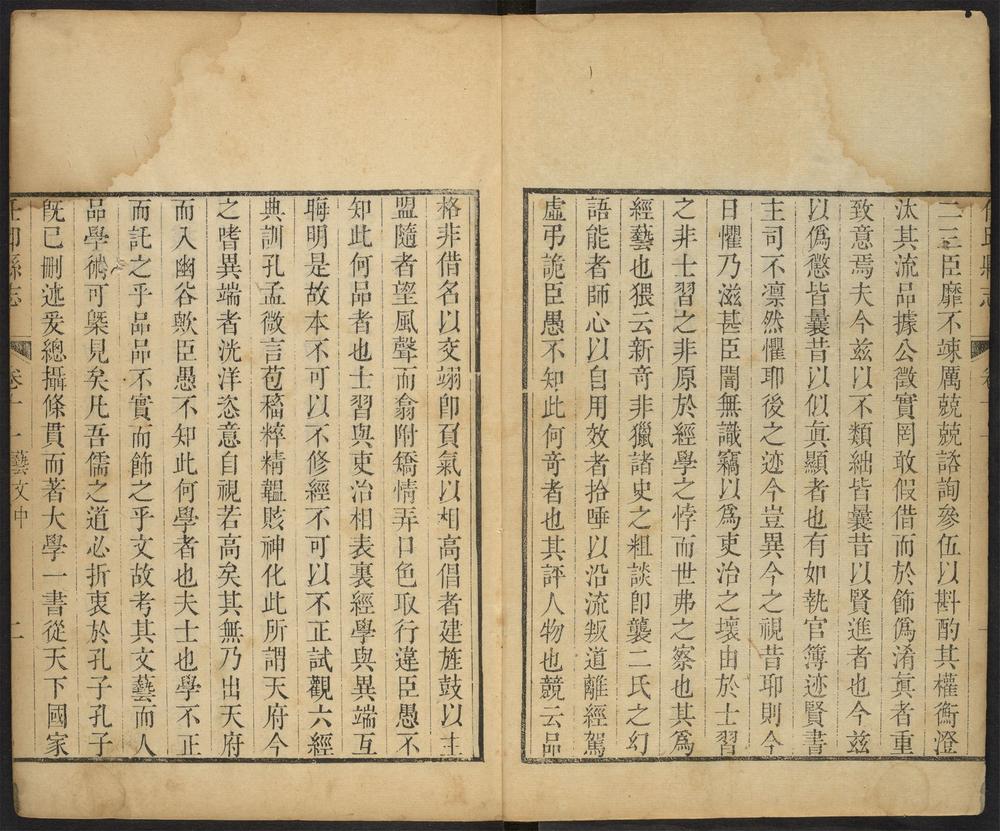 任邱縣志 卷十一
二三臣靡不竦厲兢兢諮詢參伍以斟酌其權衡澄
汰其流品據公徵實罔敢假借而於飾僞淆眞者重
致意焉夫今兹以不類絀皆曩昔以賢進者也今兹
以僞懲皆曩昔以似眞顯者也有如執官簿迹賢書
主司不凛然懼耶後之迹今豈異今之視昔耶則今
日懼乃滋甚臣闇無識竊以爲吏治之壞由於士習
之非士習之非原於經學之悖而世弗之察也其爲
經藝也猥云新竒非獵諸史之粗談卽襲二氏之幻
語能者師心以自用效者拾唾以沿流叛道離經駕
虛弔詭臣愚不知此何竒者也其評人物也競云品
格非借名以交翊卽頁氣以相高倡者建旌鼓以主
盟隨者望風聲而翕附矯情弄口色取行違臣愚不
知此何品者也士習與吏治相表裏經學與異端互
晦明是故本不可以不修經不可以不正試觀六經
典訓孔孟微言苞稸粹精韞賅神化此所謂天府今
之嗜異端者洸洋恣意自視若高矣其無乃出天府
而入幽谷歟臣愚不知此何學者也夫士也學不正
而託之乎品品不實而飾之乎文故考其文藝而人
品學術可槩見矣凡吾儒之道必折衷於孔子孔子
旣已刪述爰總攝條貫而著大學一書從天下國家
任邱縣志 卷十一 藝文中 二